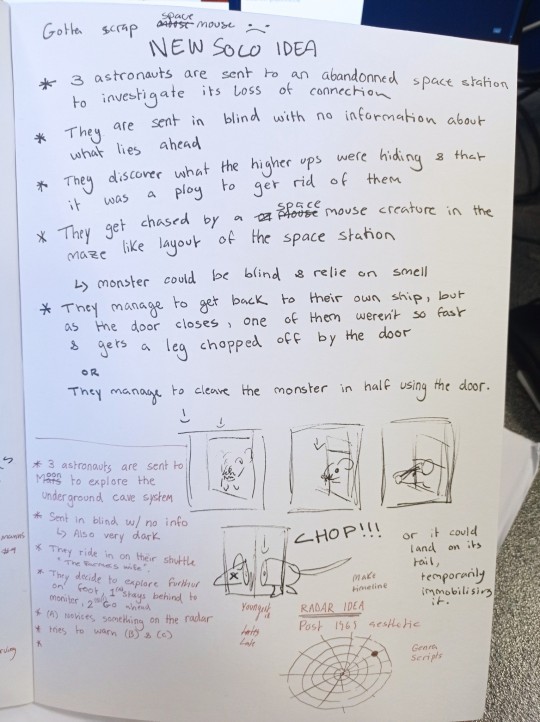 Gotta scrap space mouse
NEW SOLO IDEA
* 3 astronauts are sent to an abandonned space station
to investigate its loss of connection
* They are sent in blind with no information about
what lies ahead
* They discover what the higher ups were hiding & that
it was a ploy to get rid of them
* They get chased by a space mouse creature in the
maze like layout of the space station
↳ monster could be blind & relie on smell
* They manage to get back to their own ship, but
as the door closes, one of them weren't so fast
& gets a leg chopped off by the door
OR
They manage to cleave the monster in half using the door.
* 3 astronauts are sent to
Moon to explore the
underground cave system
* Sent in blind w/ no info
↳ Also very dark
* They ride in on their shuttle
* They decide to explore further
on foot, 1 stays behind to
monitor, 2 go ahead
* (A) notices something on the radar
* tries to warn (B) & (C)
*
CHOP!!!
or it could
land on its
tail,
temporarily
immobilising
it.
MAKE
timeline
RADAR IDEA
Post 1969 aesthetic
Genre
Scripts